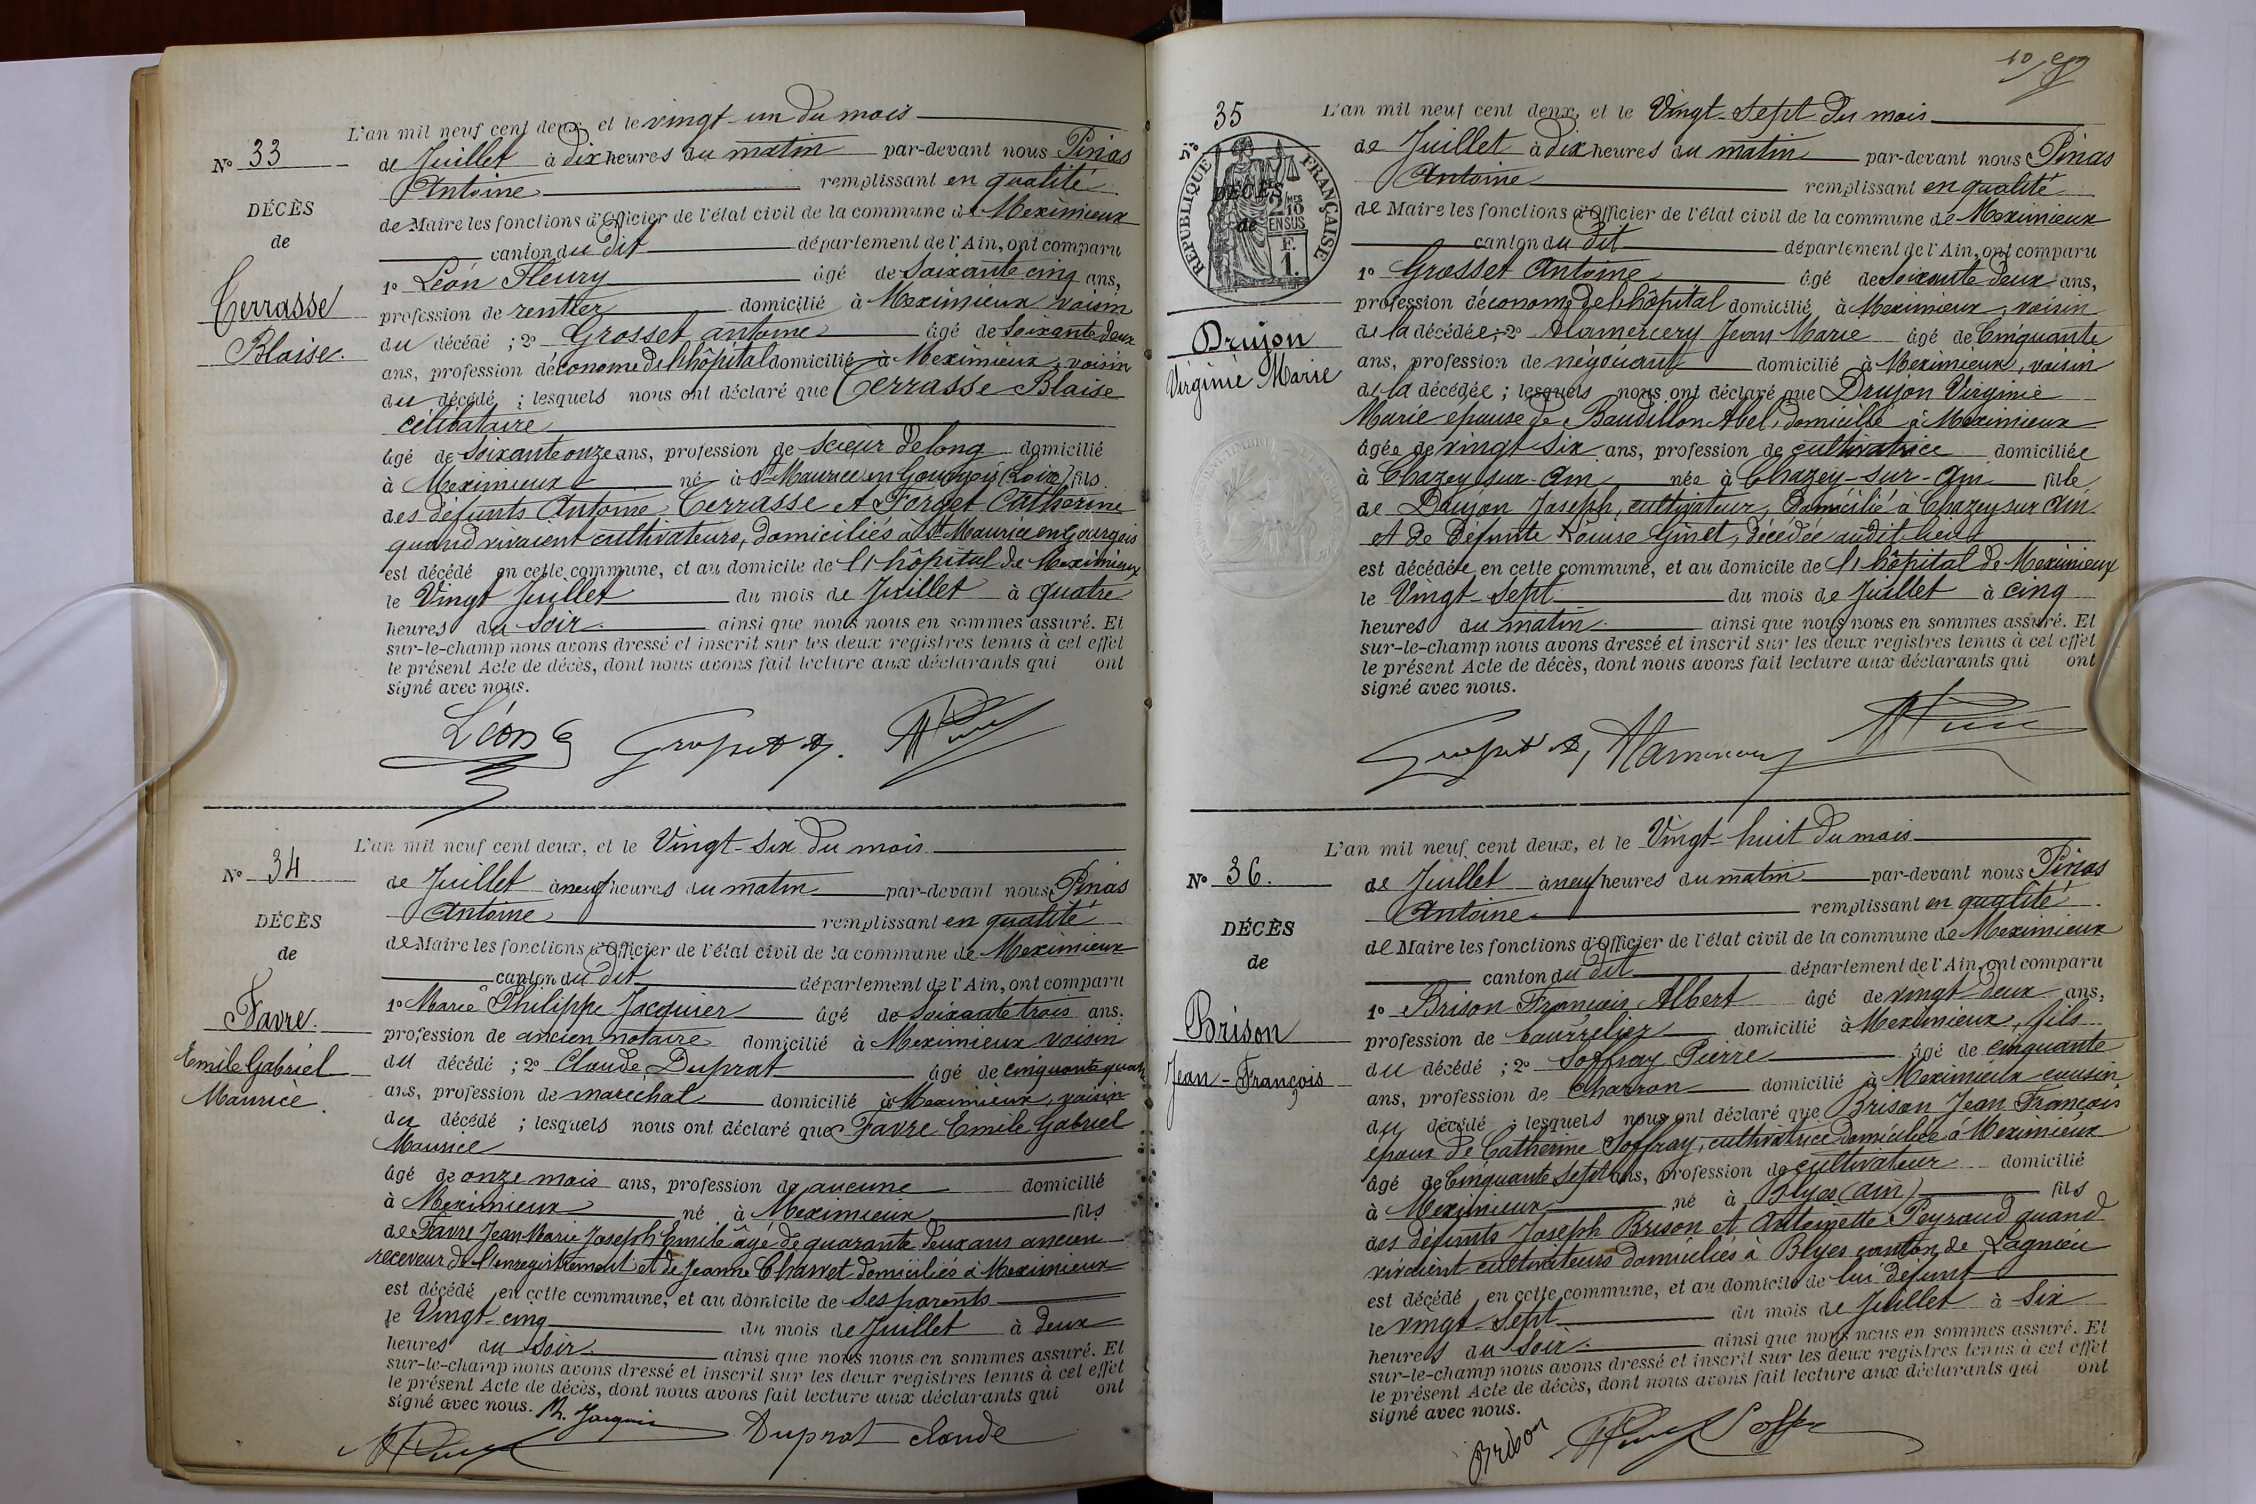 L'an mil neuf cent deux, et le vingt-un du mois
N° 33
de Juillet à dix heures du matin par-devant nous Pinas
Antoine remplissant en qualité
DÉCÈS
de Maire les fonctions d'Officier de l'état civil de la commune de Meximieux
de
canton du dit département de l'Ain, ont comparu
1° Léon Fleury âgé de Soixante cinq ans,
Terrasse
profession de rentier domicilié à Meximieux voisin
du décédé ; 2° Grosset antoine âgé de Soixante deux
Blaise.
ans, profession d'économe de l'hôpital domicilié à Meximieux, voisin
du décédé ; lesquels nous ont déclaré que Terrasse Blaise
célibataire
âgé de Soixante onze ans, profession de scieur de long domicilié
à Meximieux né à St Maurice en Gourgois (Loire) fils
des défunts Antoine Terrasse et Forget Catherine
quand vivaient cultivateurs, domiciliés à St Maurice en Gourgois
est décédé en cette commune, et au domicile de l'hôpital de Meximieux
le Vingt Juillet du mois de Juillet à quatre
heures du soir. ainsi que nous nous en sommes assuré. Et
sur-le-champ nous avons dressé et inscrit sur les deux registres tenus à cet effet
le présent Acte de décès, dont nous avons fait lecture aux déclarants qui ont
signé avec nous.
Léon Grosset A.
L'an mil neuf cent deux, et le Vingt-six du mois
N° 34
de Juillet à neuf heures du matin par-devant nous Pinas
Antoine remplissant en qualité
DÉCÈS
de Maire les fonctions d'Officier de l'état civil de la commune de Meximieux
de
canton du dit département de l'Ain, ont comparu
1° Marie Philippe Jacquier âgé de Soixante trois ans,
Favre.
profession de ancien notaire domicilié à Meximieux voisin
Emile Gabriel
du décédé ; 2° Claude Duprat âgé de cinquante quatre
Maurice.
ans, profession de maréchal domicilié à Meximieux, voisin
du décédé ; lesquels nous ont déclaré que Favre Emile Gabriel
Maurice
âgé de onze mois ans, profession de aucune domicilié
à Meximieux né à Meximieux fils
de Favre Jean Marie Joseph Emile âgé de quarante deux ans ancien
receveur de l'enregistrement et de Jeanne Charvet domiciliés à Meximieux
est décédé en cette commune, et au domicile de ses parents
le Vingt-cinq du mois de Juillet à deux
heures du soir. ainsi que nous nous en sommes assuré. Et
sur-le-champ nous avons dressé et inscrit sur les deux registres tenus à cet effet
le présent Acte de décès, dont nous avons fait lecture aux déclarants qui ont
signé avec nous. Jacquier
Duprat claude
10
35
L'an mil neuf cent deux, et le Vingt-Sept du mois
de Juillet à dix heures du matin par-devant nous Pinas
Antoine remplissant en qualité
N°
DÉCÈS
de
REPUBLIQUE FRANÇAISE
2/10 EN SUS
F.
1.
de Maire les fonctions d'Officier de l'état civil de la commune de Meximieux
canton du dit département de l'Ain, ont comparu
1° Grosset Antoine âgé de Soixante deux ans,
profession d'économe de l'hôpital domicilié à Meximieux, voisin
Drujon
de la décédée ; 2° Alamercery Jean Marie âgé de Cinquante
Virginie Marie
ans, profession de négociant domicilié à Meximieux, voisin
de la décédée ; lesquels nous ont déclaré que Drujon Virginie
Marie epouse de Baudillon Abel, domicilié à Meximieux
âgée de vingt six ans, profession de cultivatrice domiciliée
à Chazey-sur-ain née à Chazey-sur-ain fille
de Drujon Joseph, cultivateur, domicilié à Chazey sur ain
et de défunte Louise Ginet, décédée audit lieu
est décédée en cette commune, et au domicile de l'hôpital de Meximieux
le Vingt-Sept du mois de Juillet à cinq
heures du matin. ainsi que nous nous en sommes assuré. Et
sur-le-champ nous avons dressé et inscrit sur les deux registres tenus à cet effet
le présent Acte de décès, dont nous avons fait lecture aux déclarants qui ont
signé avec nous.
Grosset A,
L'an mil neuf cent deux, et le Vingt-huit du mois
N° 36.
de Juillet à neuf heures du matin par-devant nous Pinas
Antoine remplissant en qualité
DÉCÈS
de Maire les fonctions d'Officier de l'état civil de la commune de Meximieux
de
canton du dit département de l'Ain, ont comparu
1° Brison François Albert âgé de vingt deux ans,
Brison
profession de bourrelier domicilié à Meximieux, fils
du décédé ; 2° Soffray Pierre âgé de cinquante
Jean-François
ans, profession de Charron domicilié à Meximieux cousin
du décédé ; lesquels nous ont déclaré que Brison Jean François
epoux de Catherine Soffray, cultivatrice domiciliée à Meximieux
âgé de Cinquante sept ans, profession de cultivateur domicilié
à Meximieux né à Blyes (ain) fils
des défunts Joseph Brison et Antoinette Peyraud quand
vivaient cultivateurs domiciliés à Blyes canton de Lagnieu
est décédé en cette commune, et au domicile de lui défunt
le vingt-sept du mois de Juillet à six
heures du soir. ainsi que nous nous en sommes assuré. Et
sur-le-champ nous avons dressé et inscrit sur les deux registres tenus à cet effet
le présent Acte de décès, dont nous avons fait lecture aux déclarants qui ont
signé avec nous.
Brison